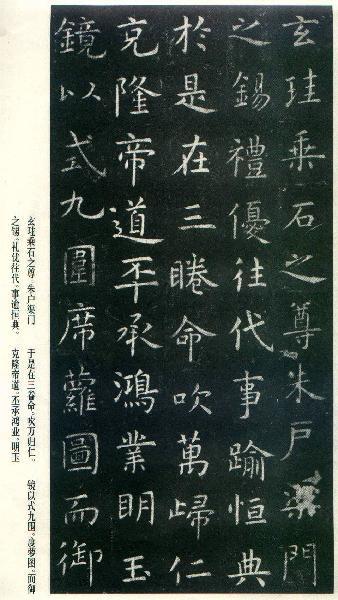 玄珪乘石之尊朱戶渠門
之錫禮優往代事踰恒典
於是在三睠命吹萬歸仁
克隆帝道丕承鴻業明玉
鏡以式九圍席蘿圖而御
玄珪乘石之尊。朱户渠门
之锡。礼优往代。事逾恒典。
于是在三眷命。吹万归仁。
克隆帝道。丕承鸿业。明玉
镜以式九围。席萝图。而御